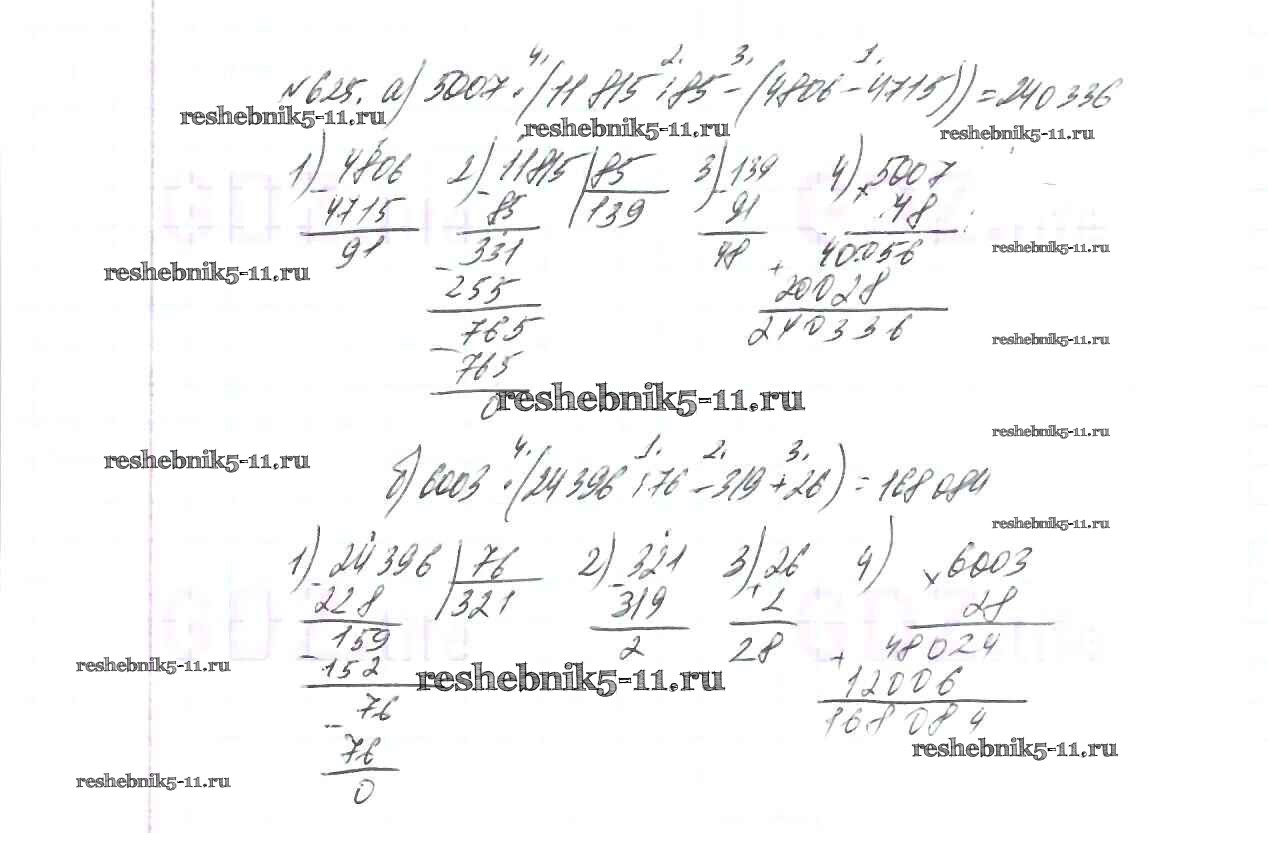 4. 2. 3. 1.
№625. а) 5007 · (11 815 : 85 − (4806 − 4715)) = 240 336
reshebnik5-11.ru reshebnik5-11.ru reshebnik5-11.ru
1) 4806 2) 11815 | 85 3) 139 4) 5007
− 4715 − 85 139 − 91 × 48
91 331 48 40056
− 255 + 20028
765 240336
− 765
0
reshebnik5-11.ru
reshebnik5-11.ru
reshebnik5-11.ru
reshebnik5-11.ru
reshebnik5-11.ru
reshebnik5-11.ru
4. 1. 2. 3.
б) 6003 · (24 396 : 76 − 319 + 26) = 168 084
reshebnik5-11.ru
1) 24 396 | 76 2) 321 3) 26 4) 6003
− 228 321 − 319 + 2 × 28
159 2 28 48024
− 152 + 12006
76 168 084
− 76
0
reshebnik5-11.ru
reshebnik5-11.ru
reshebnik5-11.ru
reshebnik5-11.ru